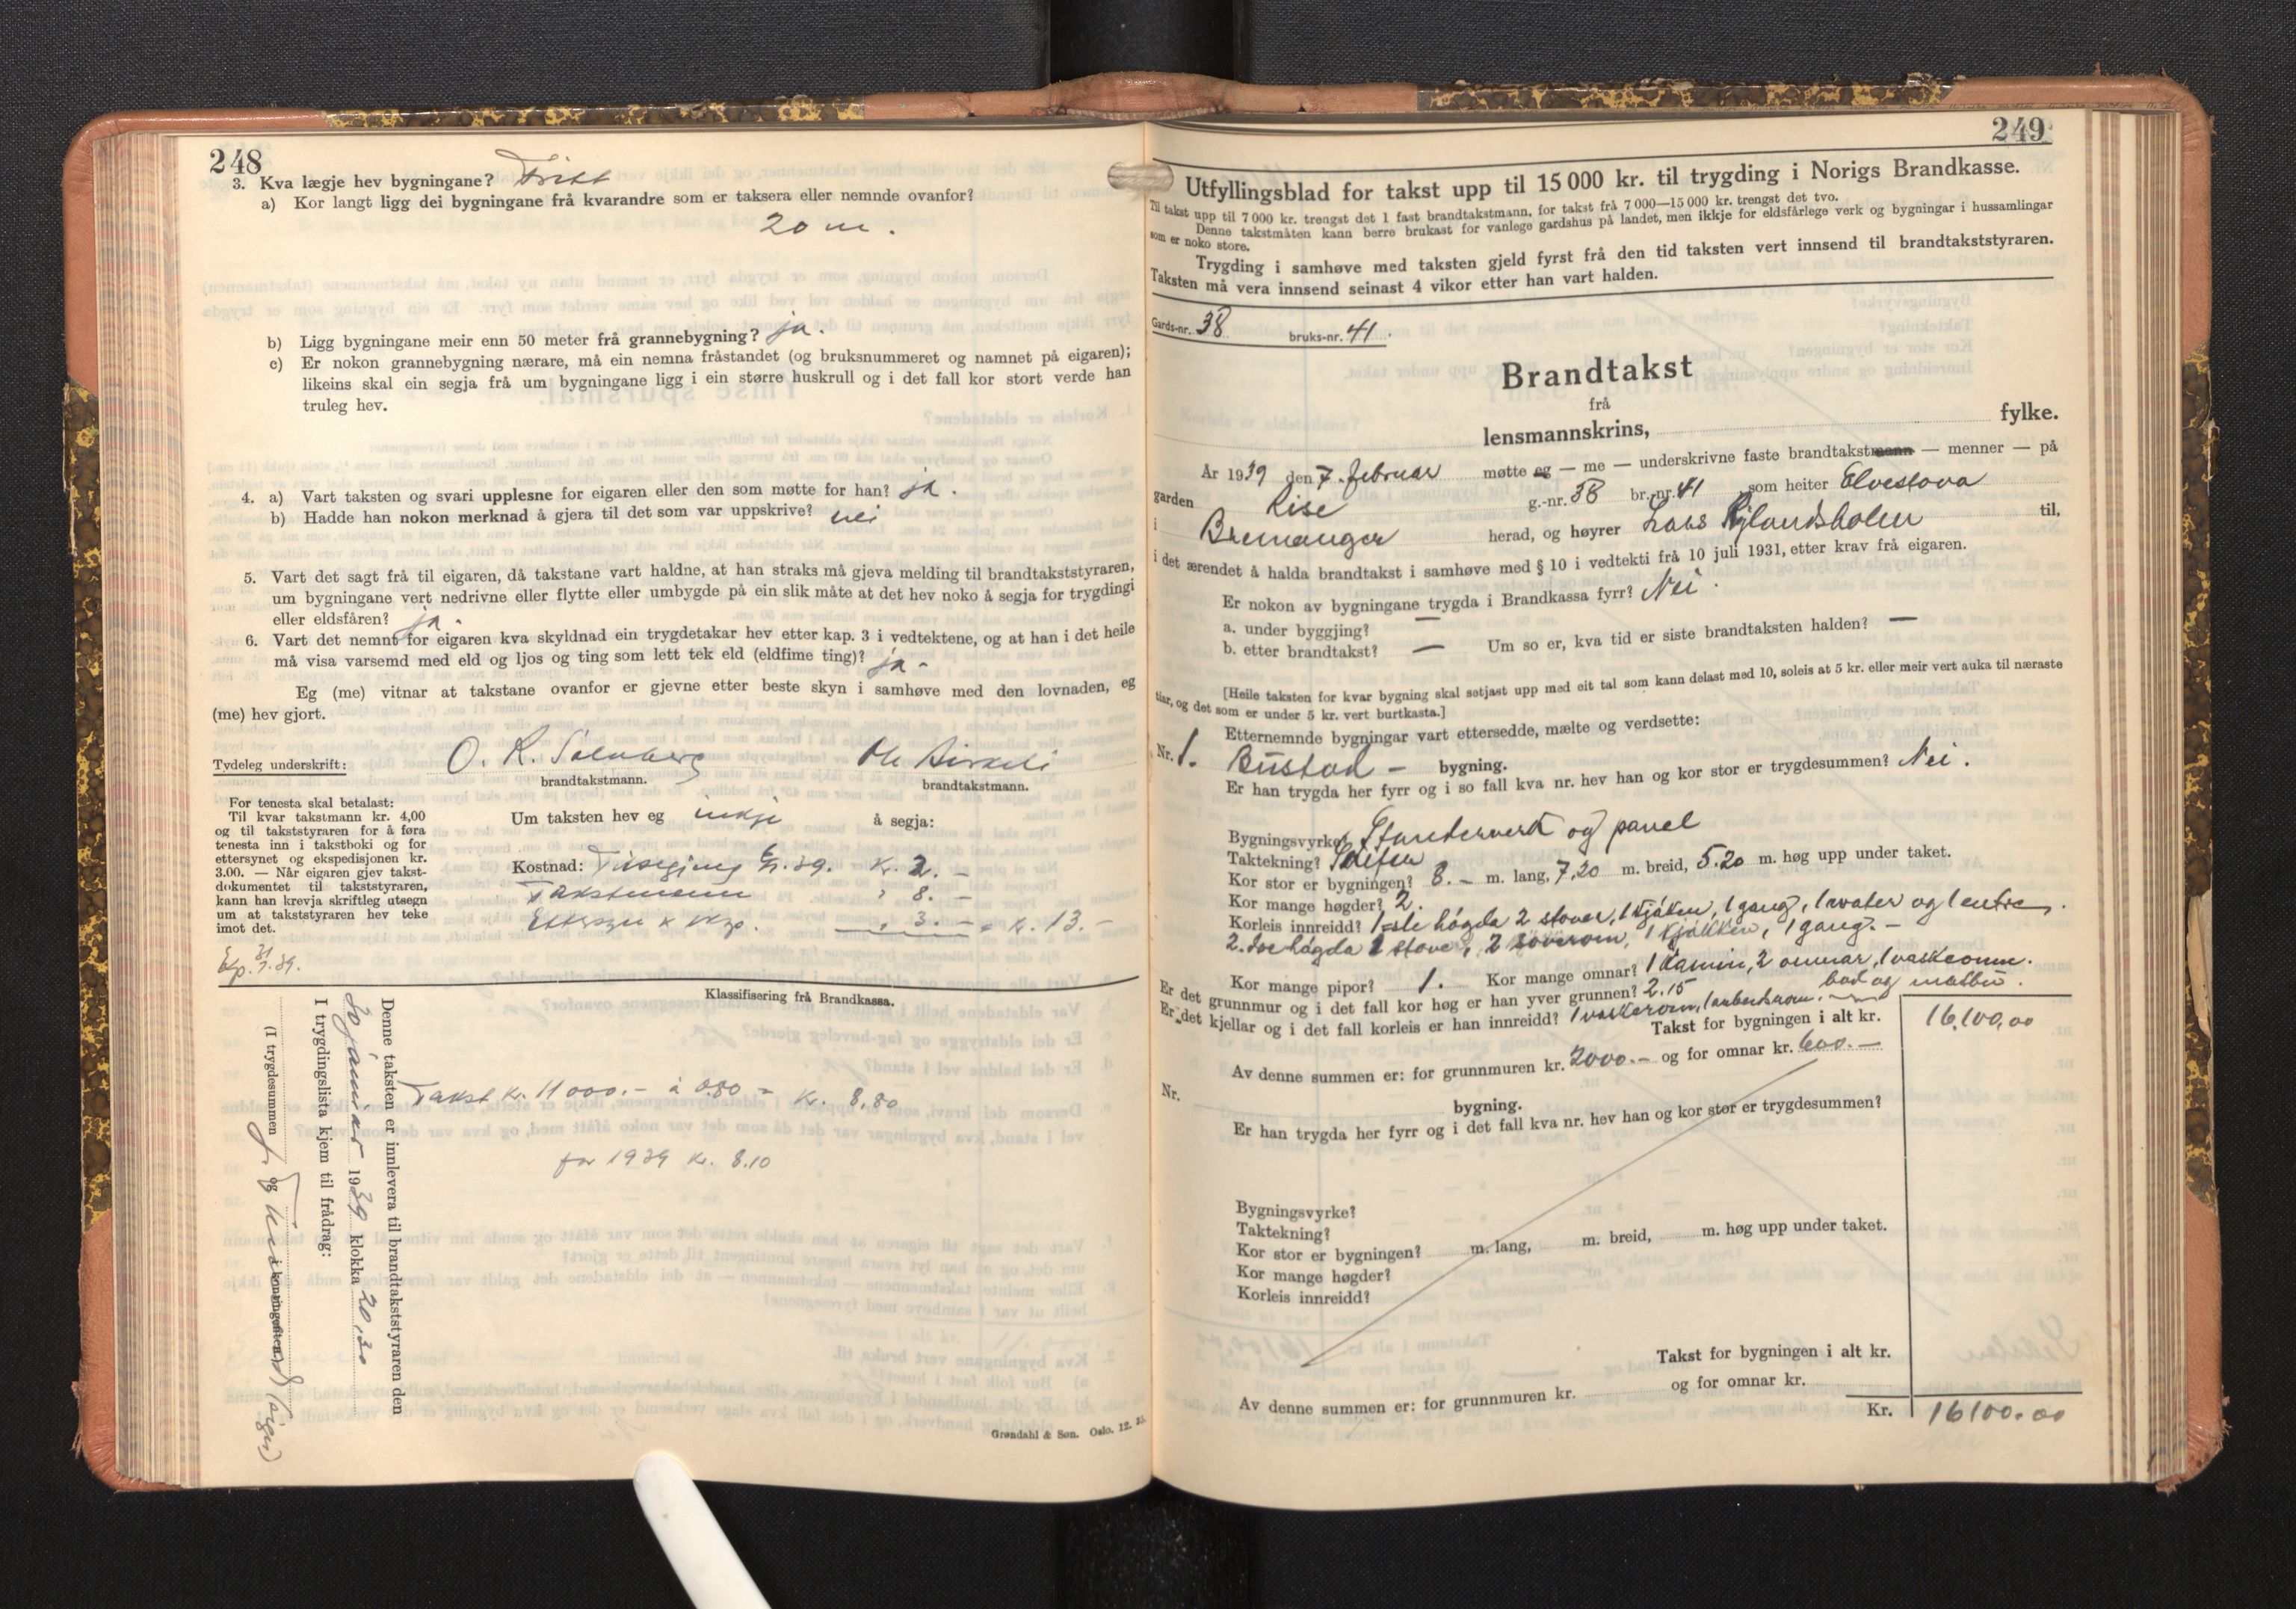 248
3. Kva lægje hev bygningane? Fritt
a) Kor langt ligg dei bygningane frå kvarandre som er taksera eller nemnde ovanfor?
20 m.
b) Ligg bygningane meir enn 50 meter frå grannebygning? ja.
c) Er nokon grannebygning nærare, må ein nemna fråstandet (og bruksnummeret og namnet på eigaren);
likeins skal ein segja frå um bygningane ligg i ein større huskrull og i det fall kor stort verde han
truleg hev.
4. a) Vart taksten og svari upplesne for eigaren eller den som møtte for han? ja.
b) Hadde han nokon merknad å gjera til det som var uppskrive? nei
5. Vart det sagt frå til eigaren, då takstane vart haldne, at han straks må gjeva melding til brandtakststyraren,
um bygningane vert nedrivne eller flytte eller umbygde på ein slik måte at det hev noko å segja for trygdingi
eller eldsfåren? ja.
6. Vart det nemnt for eigaren kva skyldnad ein trygdetakar hev etter kap. 3 i vedtektene, og at han i det heile
må visa varsemd med eld og ljos og ting som lett tek eld (eldfime ting)? ja.
Eg (me) vitnar at takstane ovanfor er gjevne etter beste skyn i samhøve med den lovnaden, eg
(me) hev gjort.
Tydeleg underskrift: O. K.
brandtakstmann. brandtakstmann.
For tenesta skal betalast:
Til kvar takstmann kr. 4,00
og til takststyraren for å føra
tenesta inn i taksthoki og for
ettersynet og ekspedisjonen kr.
3.00. — Når eigaren gjev takst-
dokumentet til takststyraren,
kann han krevja skriftleg utsegn
um at takststyraren hev teke
imot det.
Um taksten hev eg inkje å segja:
Kostnad: Tinglysing 39. Kr. 2.-
Takstmenn " 8.-
Ettersyn " 3.- = Kr. 13.-
Exp. 31/7.39.
Klassifisering frå Brandkassa.
Takst kr. 11000.- à 0.80 = kr. 8,80
for 1939 kr. 8.10
Denne taksten er innlevera til brandtakststyraren den
1939 klokka 20,30
I trygdingslista kjem til frådrag:
(I trygdesummen og i kontingenten)
Grøndahl & Søn. Oslo. 12. 35.
249
Utfyllingsblad for takst upp til 15 000 kr. til trygding i Norigs Brandkasse.
Til takst upp til 7 000 kr. trengst det 1 fast brandtakstmann, for takst frå 7 000—15 000 kr. trengst det tvo.
Denne takstmåten kann berre brukast for vanlege gardshus på landet, men ikkje for eldsfårlege verk og bygningar i hussamlingar
som er noko store.
Trygding i samhøve med taksten gjeld fyrst frå den tid taksten vert innsend til brandtakststyraren.
Taksten må vera innsend seinast 4 vikor etter han vart halden.
Gards-nr. 38 bruks-nr. 41.
Brandtakst
frå
lensmannskrins, fylke.
År 1939 den 7. februar møtte eg — me — underskrivne faste brandtakstmann — menner — på
garden Rise g.-nr. 38 br.-nr. 41 som heiter Elvestova
i Bremanger herad, og høyrer Lars Rylandsholm til,
i det ærendet å halda brandtakst i samhøve med § 10 i vedtekti frå 10 juli 1931, etter krav frå eigaren.
Er nokon av bygningane trygda i Brandkassa fyrr? Nei.
a. under byggjing? —
b. etter brandtakst? — Um so er, kva tid er siste brandtaksten halden? —
[Heile taksten for kvar bygning skal setjast upp med eit tal som kann delast med 10, soleis at 5 kr. eller meir vert auka til næraste
tiar, og det som er under 5 kr. vert burtkasta.]
Etternemnde bygningar vart ettersedde, mælte og verdsette:
Nr. 1. Bustad - bygning.
Er han trygda her fyrr og i so fall kva nr. hev han og kor stor er trygdesummen? Nei.
Bygningsvyrke? Standerverk og panel
Taktekning? Skifer
Kor stor er bygningen? 8.- m. lang, 7,20 m. breid, 5.20 m. høg upp under taket.
Kor mange høgder? 2.
Korleis innreidd? 1ste høgda 2 stover, 1 kjøken, 1 gang, 1 vater og 1 entre.
2. dre høgda 2 stover, 2 soverom, 1 kjøkken, 1 gang.-
Kor mange pipor? 1. Kor mange omnar? 1 kamin, 2 omnar, 1 vaskeomn.
Er det grunnmur og i det fall kor høg er han yver grunnen? 2.15 bad og matbu.
Er det kjellar og i det fall korleis er han innreidd? 1 vaskerom, 1 arbeidsrom.
Takst for bygningen i alt kr. 16,100,00
Av denne summen er: for grunnmuren kr. 2000.- og for omnar kr. 600.-
Nr. bygning.
Er han trygda her fyrr og i det fall kva nr. hev han og kor stor er trygdesummen?
Bygningsvyrke?
Taktekning?
Kor stor er bygningen? m. lang, m. breid, m. høg upp under taket.
Kor mange høgder?
Korleis innreidd?
Takst for bygningen i alt kr.
Av denne summen er: for grunnmuren kr. og for omnar kr.
Kr. 16100.00